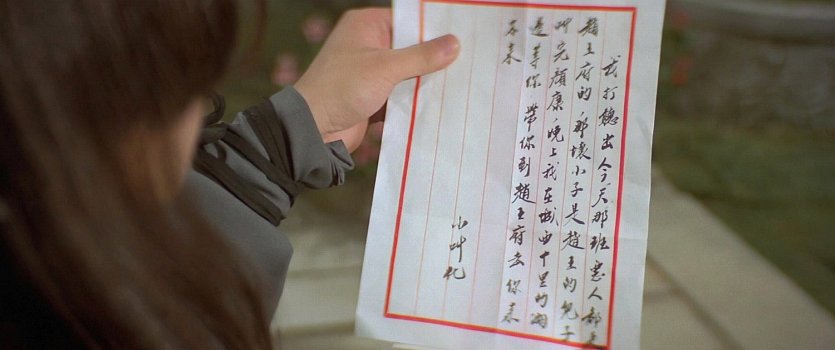 我打聽出今天那班惡人都是
趙王府的，那壞小子是趙王的兒子
叫完顏康，晚上我在城西十里的湖
邊等你，帶你到趙王府去你來
不來
小叫化